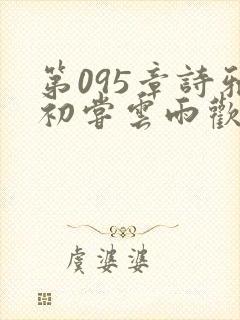 第095章詩雅
初嘗雲雨歡
虞婆婆